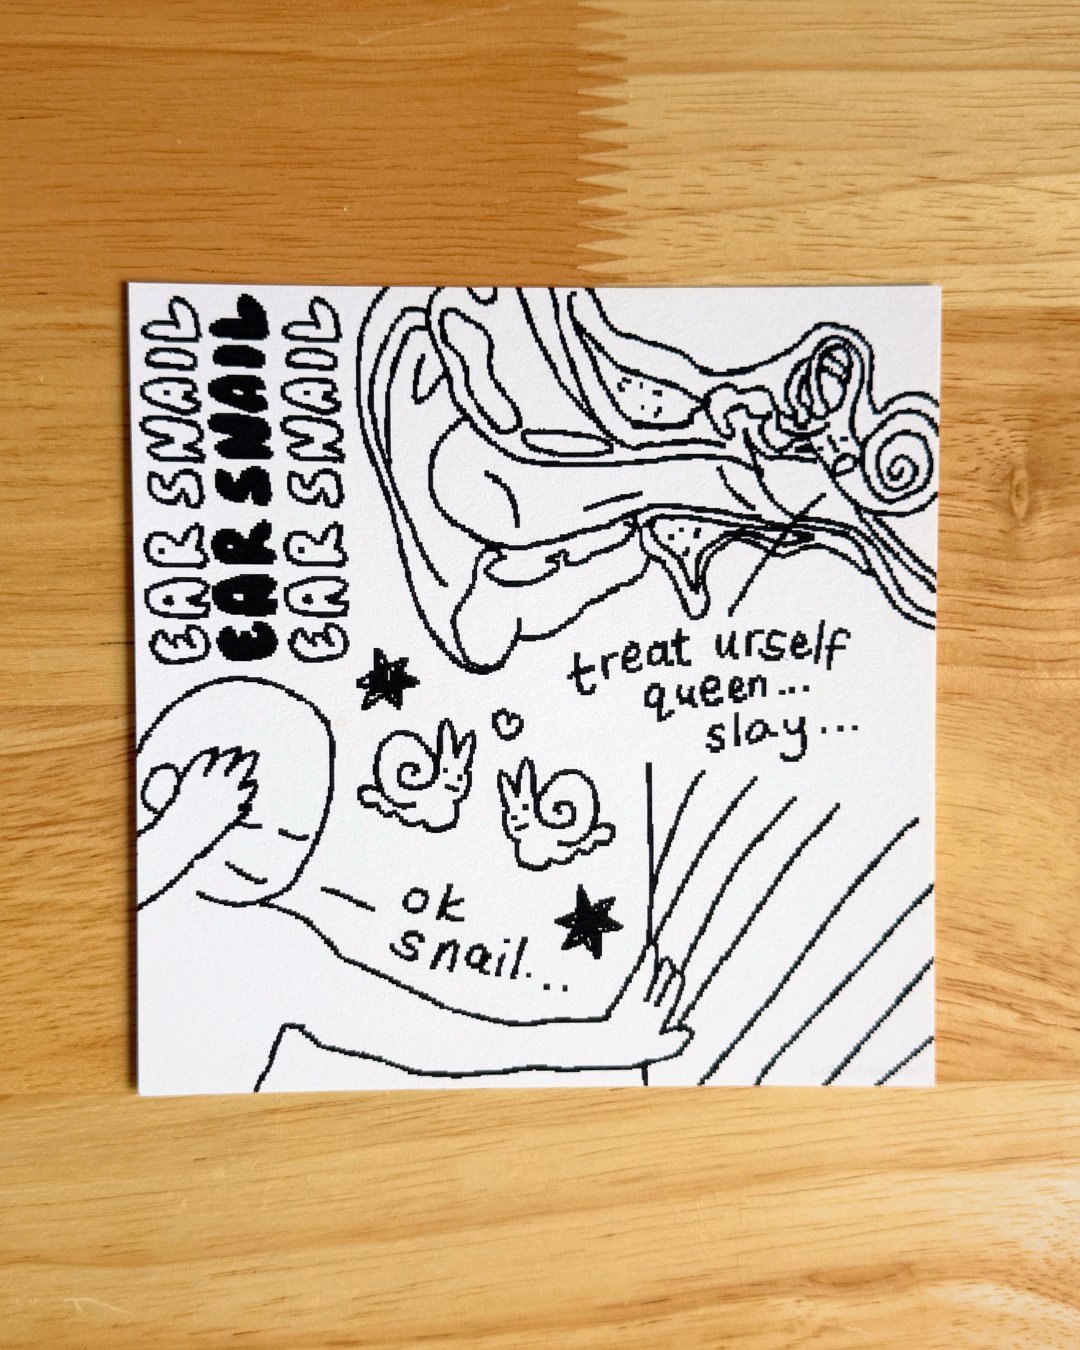 EAR SNAIL
EAR SNAIL
EAR SNAIL
treat urself
queen...
slay...
ok
snail...